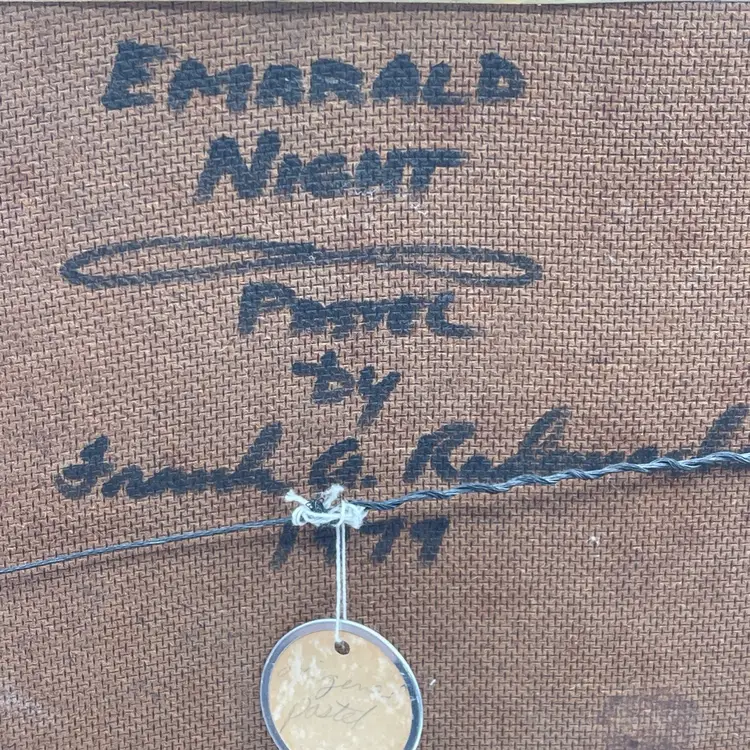 EMARALD
NIGHT
PASTEL
by
Frank G.
1979
pastel